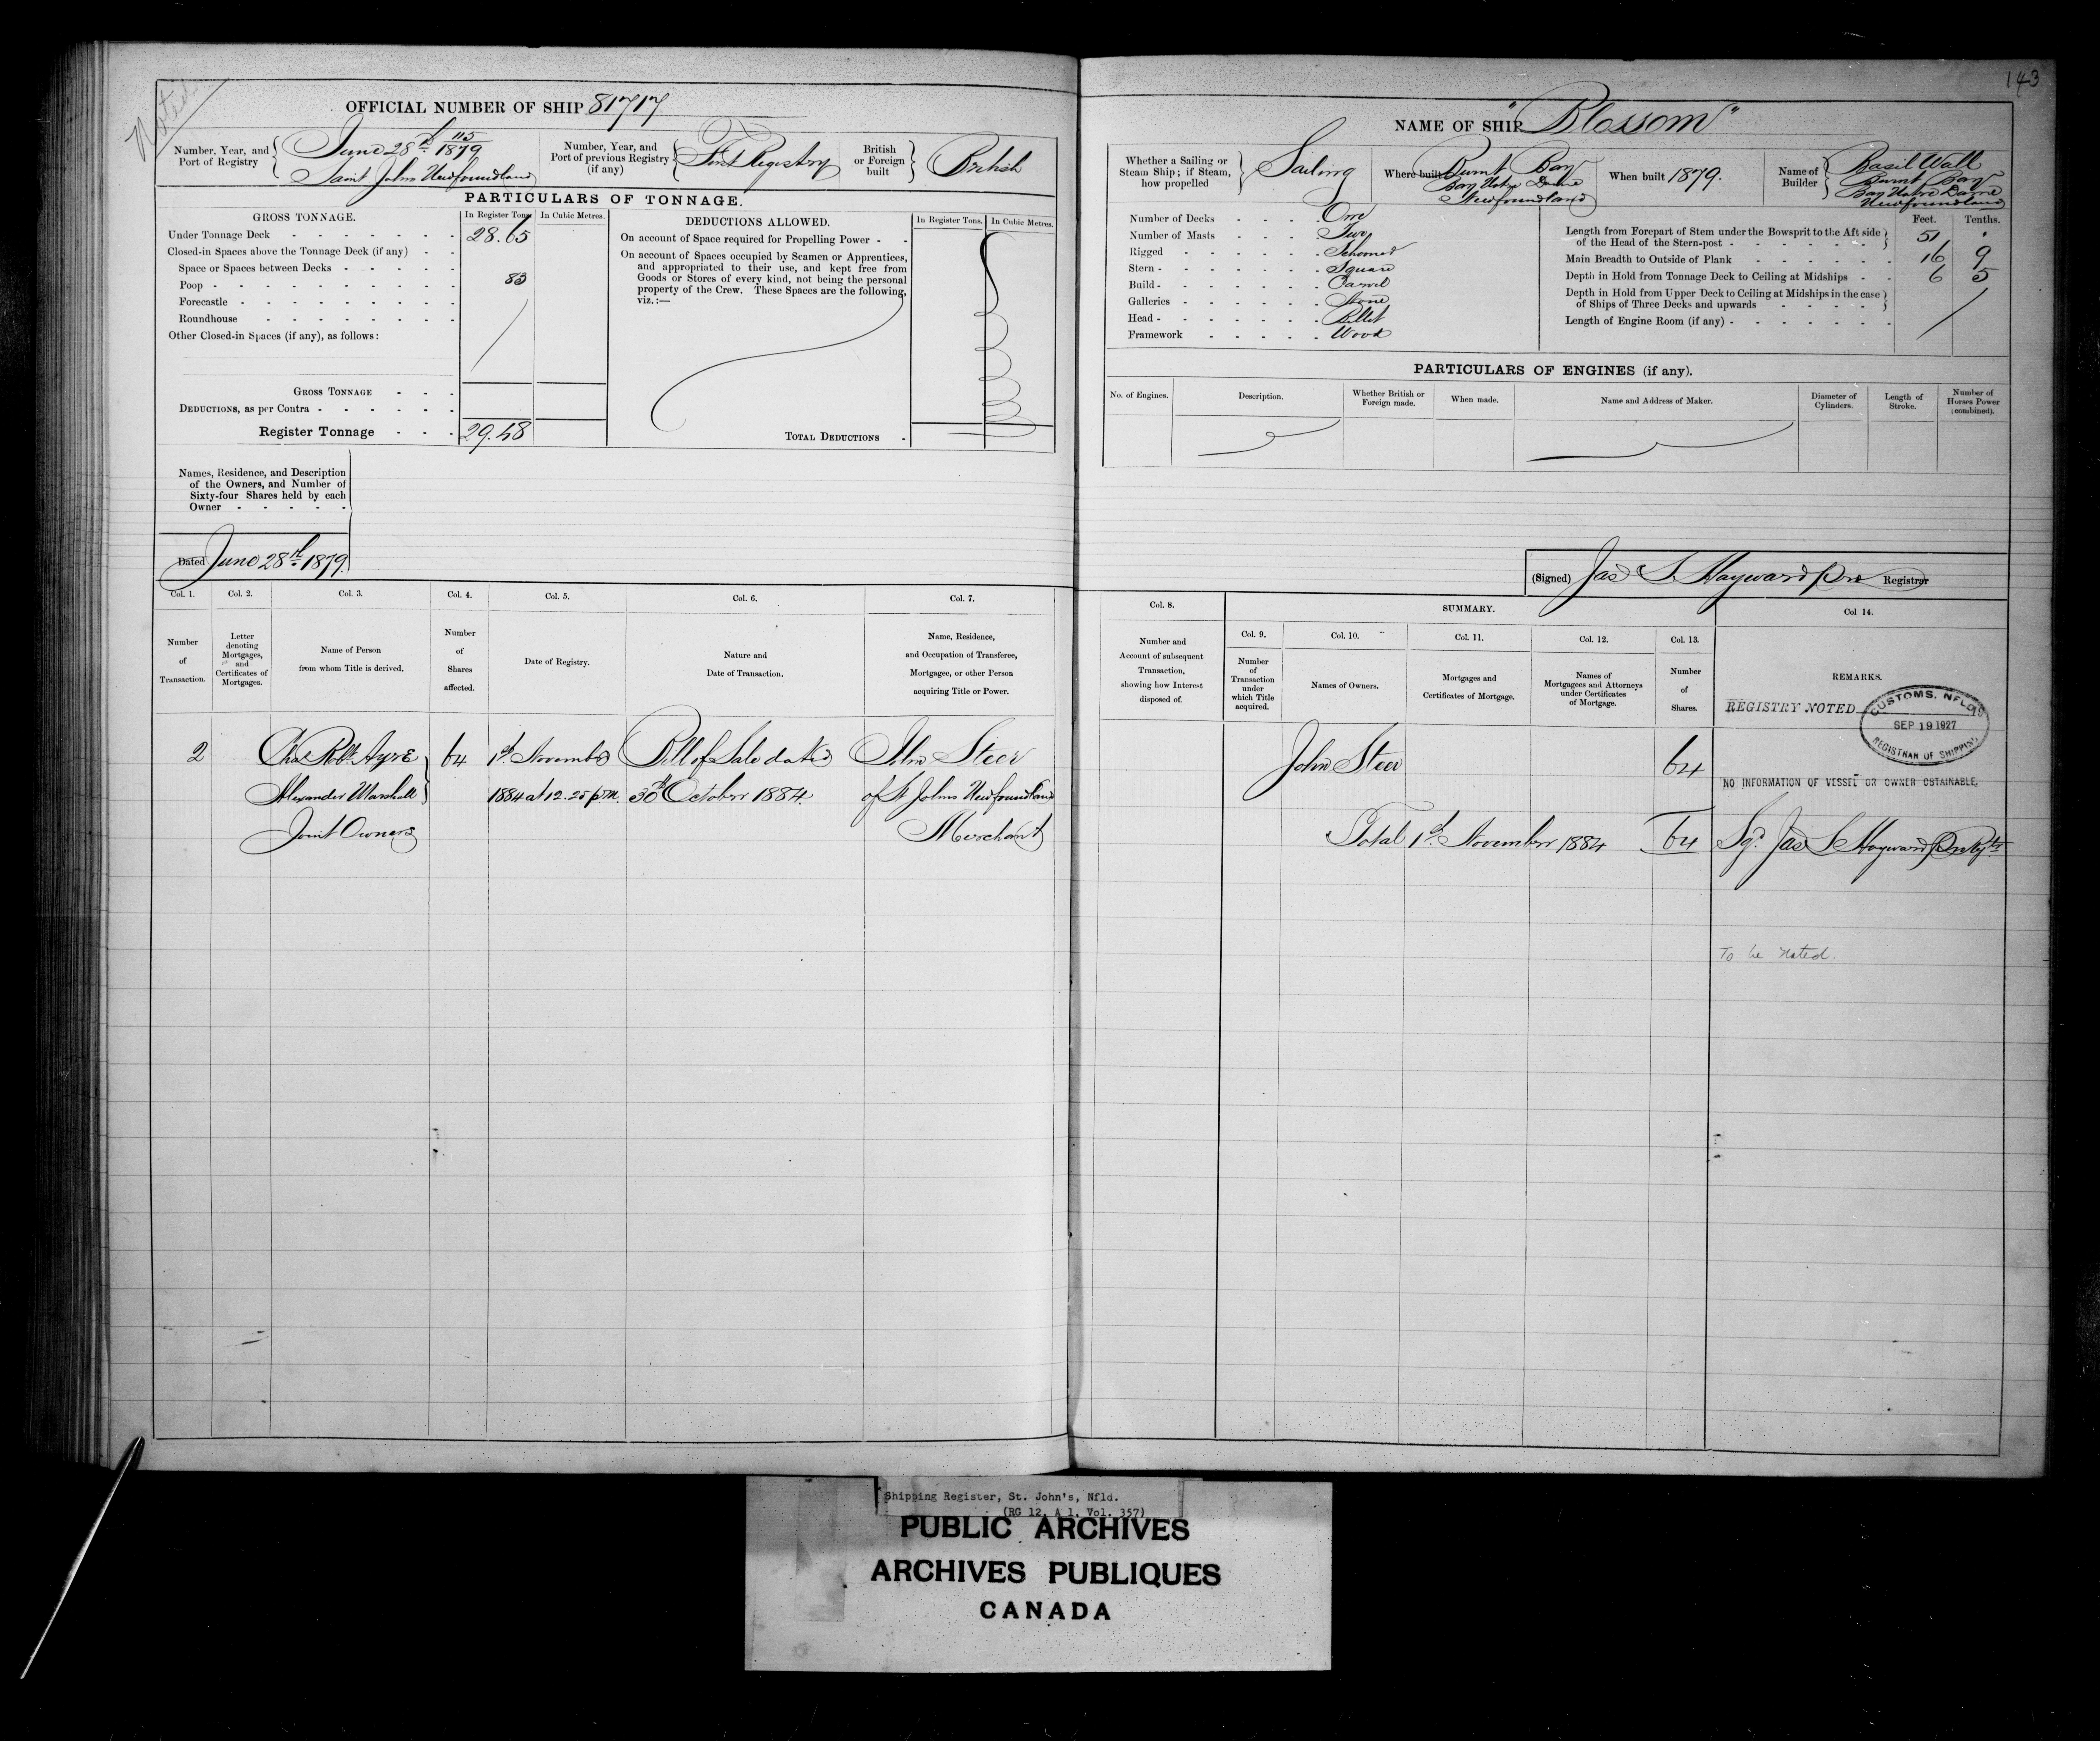 Noted
OFFICIAL NUMBER OF SHIP 81717
Number, Year, and Port of Registry
115
June 28th 1879
Saint Johns Newfoundland
Number, Year, and Port of previous Registry (if any)
First Registry
British or Foreign built
British
PARTICULARS OF TONNAGE.
GROSS TONNAGE.
In Register Tons.
In Cubic Metres.
Under Tonnage Deck 28.65
Closed-in Spaces above the Tonnage Deck (if any)
Space or Spaces between Decks
Poop 83
Forecastle
Roundhouse
Other Closed-in Spaces (if any), as follows:
GROSS TONNAGE
DEDUCTIONS, as per Contra
Register Tonnage 29.48
DEDUCTIONS ALLOWED.
In Register Tons.
In Cubic Metres.
On account of Space required for Propelling Power
On account of Spaces occupied by Seamen or Apprentices,
and appropriated to their use, and kept free from
Goods or Stores of every kind, not being the personal
property of the Crew. These Spaces are the following,
viz.:—
TOTAL DEDUCTIONS
Names, Residence, and Description
of the Owners, and Number of
Sixty-four Shares held by each
Owner
Dated June 28th 1879.
Col. 1. Col. 2. Col. 3. Col. 4. Col. 5. Col. 6. Col. 7.
Number of Transaction.
Letter denoting Mortgages, and Certificates of Mortgages.
Name of Person from whom Title is derived.
Number of Shares affected.
Date of Registry.
Nature and Date of Transaction.
Name, Residence, and Occupation of Transferee, Mortgagee, or other Person acquiring Title or Power.
2 Chas Robt Ayre 64 1st November Bill of Sale dated John Steer
Alexander Marshall 1884 at 12.25 p.m. 30th October 1884. of St Johns Newfoundland
Joint Owners Merchant
143
NAME OF SHIP "Blossom"
Whether a Sailing or Steam Ship; if Steam, how propelled
Sailing
Where built
Burnt Bay
Bay Notre Dame
Newfoundland
When built 1879.
Name of Builder
Basil Wall
Burnt Bay
Bay Notre Dame
Newfoundland
Number of Decks One
Number of Masts Two
Rigged Schooner
Stern Square
Build Carvel
Galleries None
Head Billet
Framework Wood
Feet. Tenths.
Length from Forepart of Stem under the Bowsprit to the Aft side
of the Head of the Stern-post 51
Main Breadth to Outside of Plank 16 9
Depth in Hold from Tonnage Deck to Ceiling at Midships 6 5
Depth in Hold from Upper Deck to Ceiling at Midships in the case
of Ships of Three Decks and upwards
Length of Engine Room (if any)
PARTICULARS OF ENGINES (if any).
No. of Engines.
Description.
Whether British or Foreign made.
When made.
Name and Address of Maker.
Diameter of Cylinders.
Length of Stroke.
Number of Horses Power (combined).
(Signed) Jas S Hayward Registrar
Col. 8.
SUMMARY.
Col 14.
Col. 9. Col. 10. Col. 11. Col. 12. Col. 13.
Number and Account of subsequent Transaction, showing how Interest disposed of.
Number of Transaction under which Title acquired.
Names of Owners.
Mortgages and Certificates of Mortgage.
Names of Mortgagees and Attorneys under Certificates of Mortgage.
Number of Shares.
REMARKS.
REGISTRY NOTED
CUSTOMS, NFLD
SEP 19 1927
REGISTRAR OF SHIPPING
John Steer 64
NO INFORMATION OF VESSEL OR OWNER OBTAINABLE.
Total 1st November 1884 64 Sgd. Jas S Hayward
To be Noted.
Shipping Register, St. John's, Nfld.
(RG 12, A 1, Vol. 357)
PUBLIC ARCHIVES
ARCHIVES PUBLIQUES
CANADA